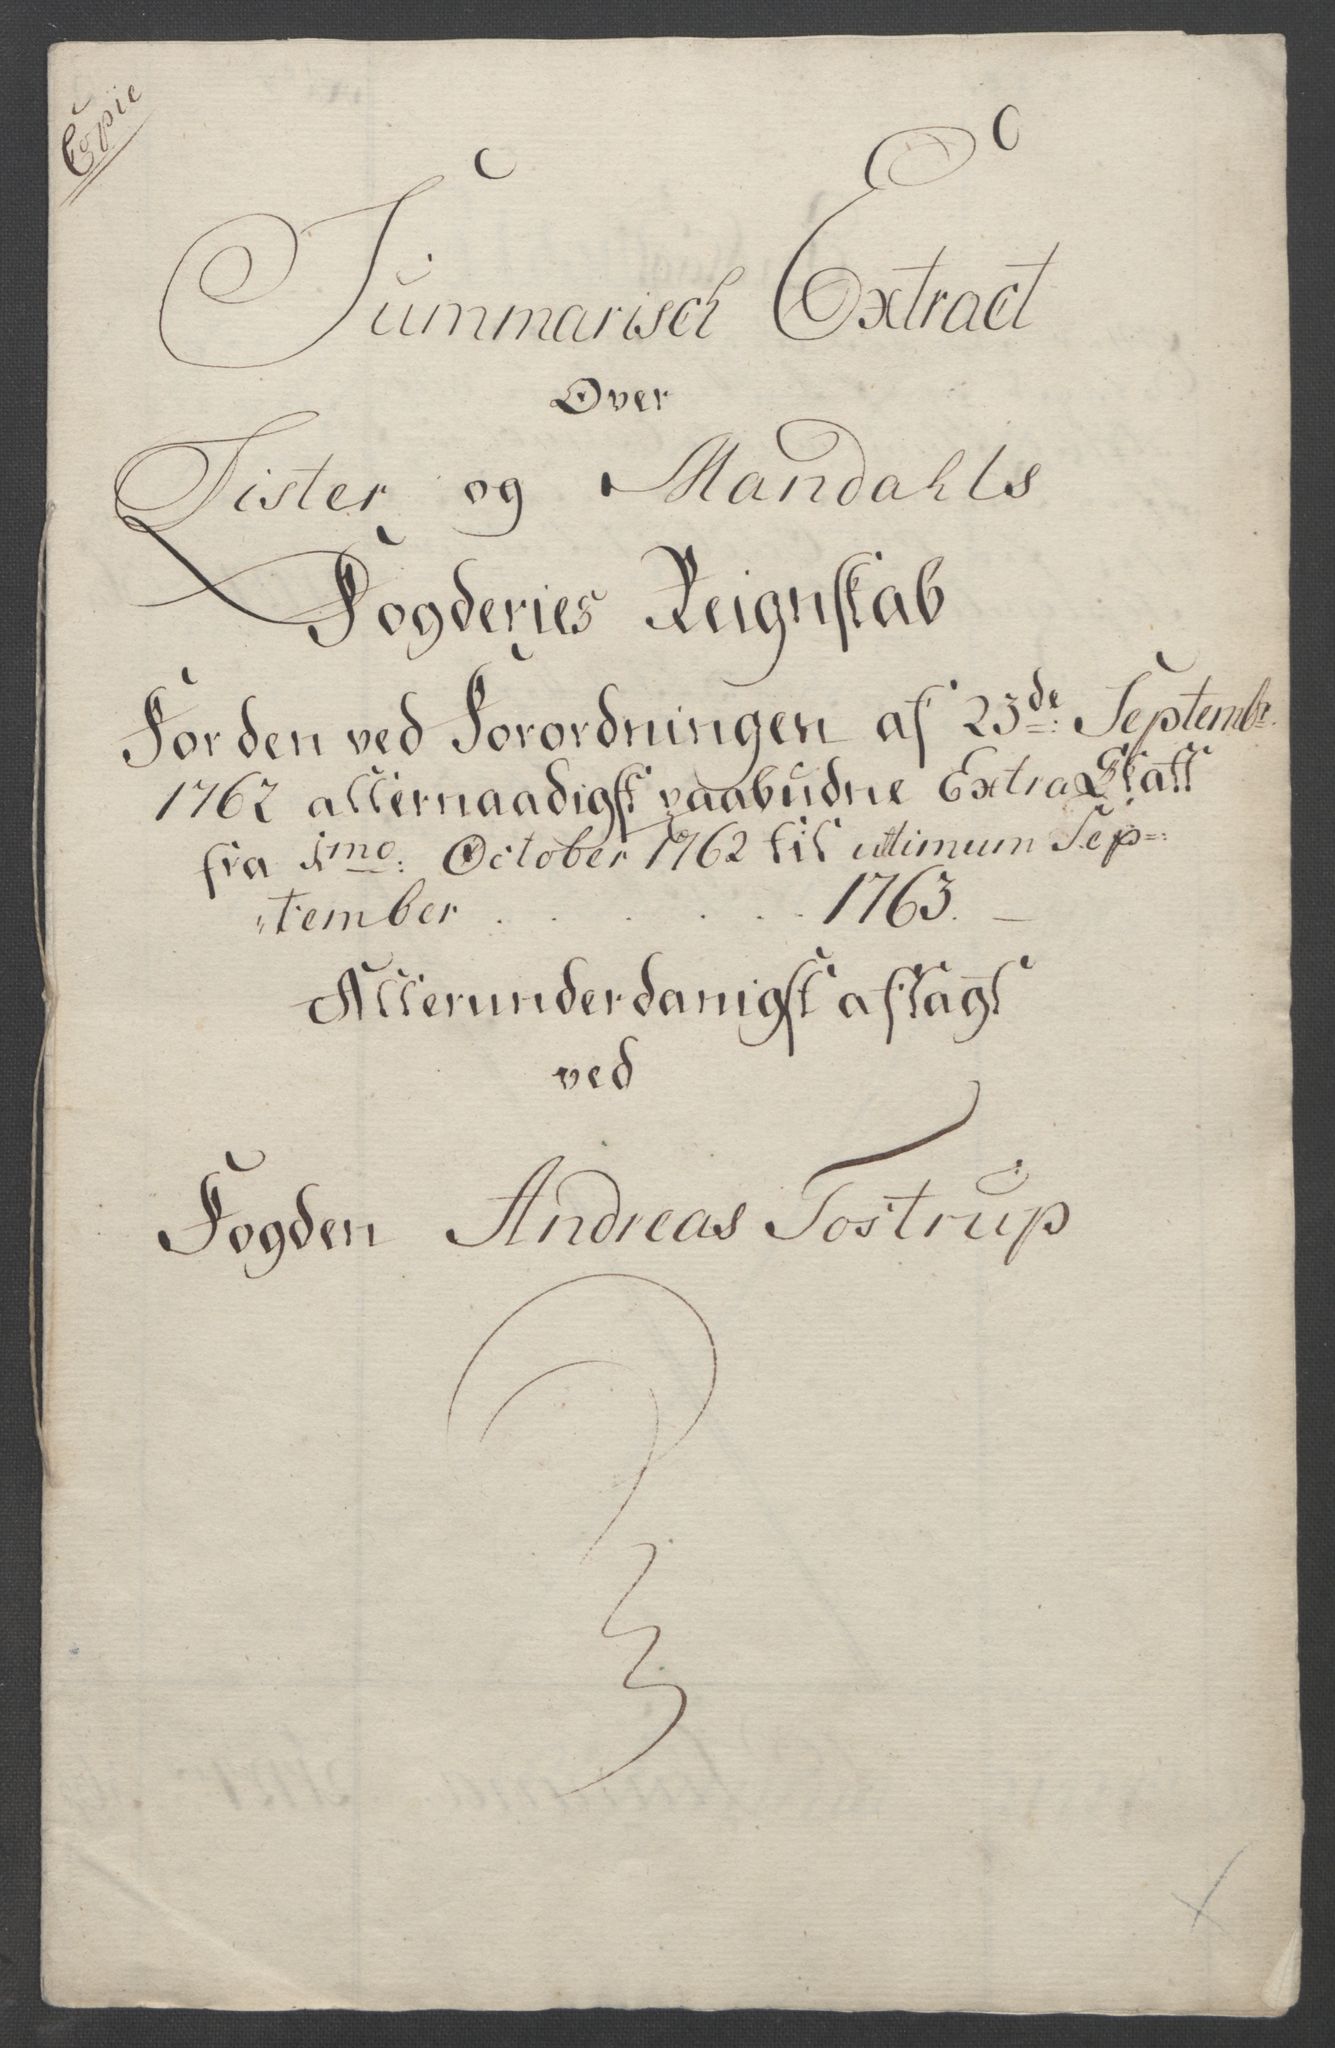 Copie
Summarisch Extract
Over
Lister og Mandahls
Fogderies Reignskab
For den ved Forordningen af 23de: Septembr.
1762 allernaadigst paabudne Extra Skatt
fra 1mo: October 1762 til ultimum Sep=
tember . . . . . . 1763. —
Allerunderdanigst aflagt
ved
Fogden Andreas Tostrup